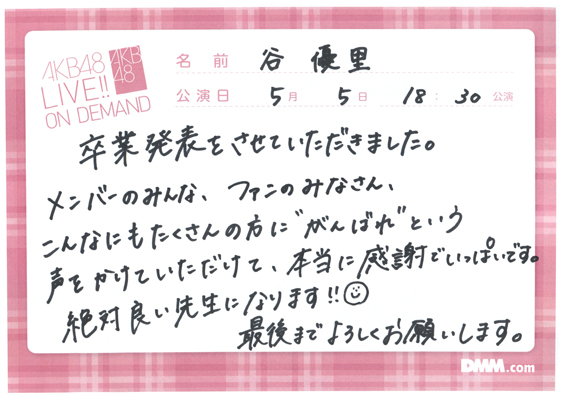 AKB48
LIVE!!
ON DEMAND
AKB
48
名前 谷 優里
公演日 5月 5日 18:30公演
卒業発表をさせていただきました。
メンバーのみんな、ファンのみなさん、
こんなにもたくさんの方に"がんばれ"という
声をかけていただけて、本当に感謝でいっぱいです。
絶対良い先生になります!!☺
最後までよろしくお願いします。
DMM.com